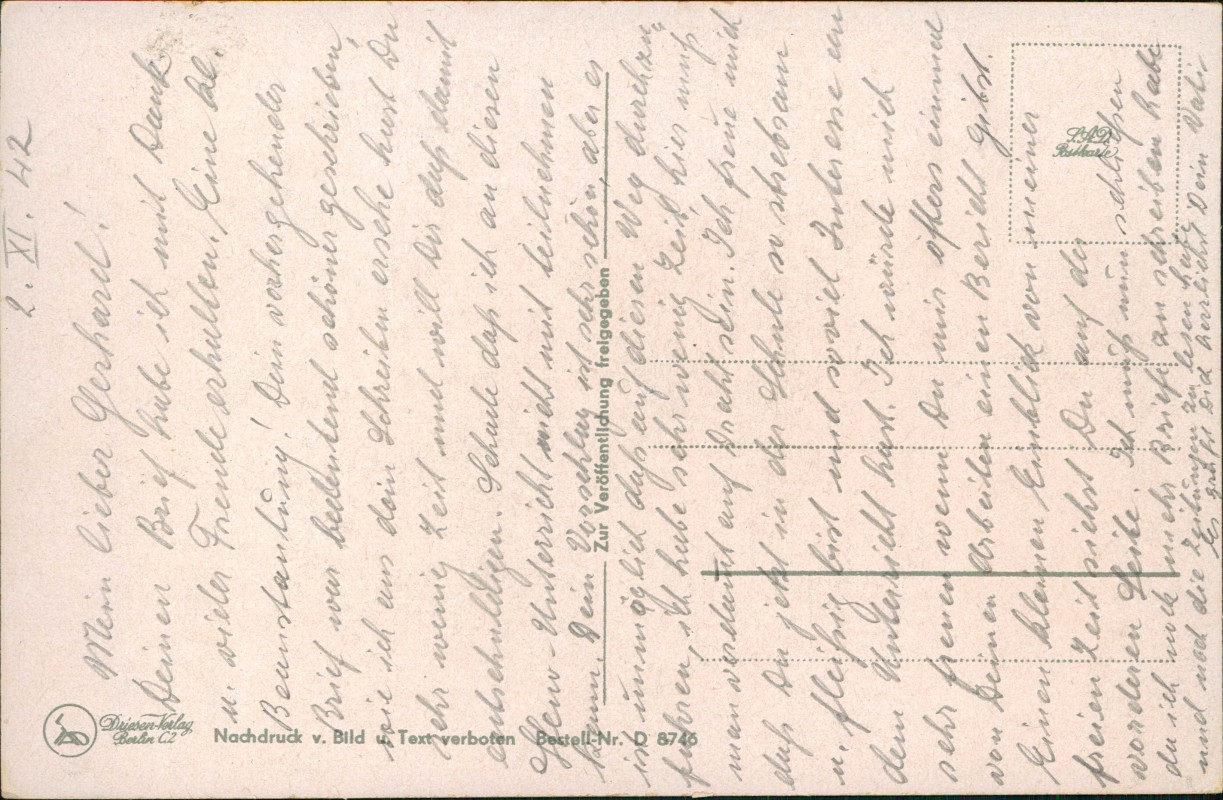 2. XI. 42
Mein lieber Gerhard!
Deinen Brief habe ich mit Dank
u. vieler Freude erhalten. Eine kl.
Beanstandung! Dein vorhergehender
Brief war bedeutend schöner geschrieben,
wie ich aus dein Schreiben ersehe hast Du
sehr wenig Zeit und will dir daß damit
entschuldigen. Schade daß ich an diesen
Steno-Unterricht nicht mit teilnehmen
kann. Dein Vorschlag ist sehr schön, aber es
ist unmöglich daß auf diesen Weg durchzu-
führen, ich habe sehr wenig Zeit, hier muß
man verdammt auf Draht sein. Ich freue mich
daß Du jetzt in der Schule so strebsam
u. fleißig bist und soviel Interesse an
dem Unterricht hast. Ich würde mich
sehr freuen wenn Du mir öfters einmal
von Deinen Arbeiten einen Bericht gibst.
Einen kleinen Einblick von meiner
freien Zeit siehst Du auf der
vorderen Seite. Ich muß nun schließen
da ich noch mehr Briefe zu schreiben habe
und noch die Zeitungen zu lesen hab.
Es grüßt Dich herzlichst Dein Vati
Driesen-Verlag
Berlin C.2
Nachdruck v. Bild u. Text verboten Bestell-Nr. D 8746
Zur Veröffentlichung freigegeben
Postkarte